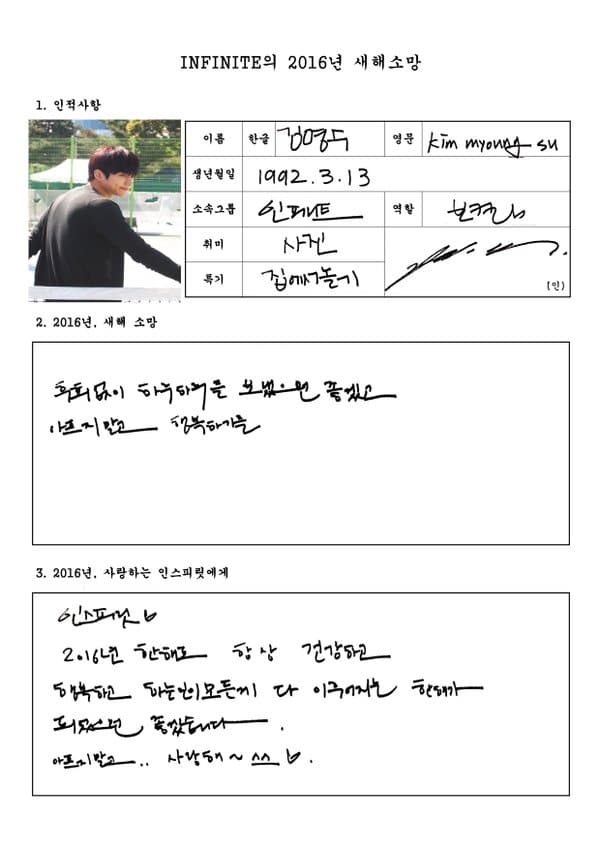 INFINITE의 2016년 새해소망
1. 인적사항
이름 한글 김명수 영문 kim myoung su
생년월일 1992.3.13
소속그룹 인피니트 역할 보컬
취미 사진
특기 집에서놀기
(인)
2. 2016년, 새해 소망
후회없이 하루하루를 보냈으면 좋겠고
아프지말고 행복하기를
3. 2016년, 사랑하는 인스피릿에게
인스피릿♡
2016년 한해도 항상 건강하고
행복하고 하는일이모든게 다 이루어지는 한해가
되었으면 좋겠습니다.
아프지말고.. 사랑해~ ^^ ♡.